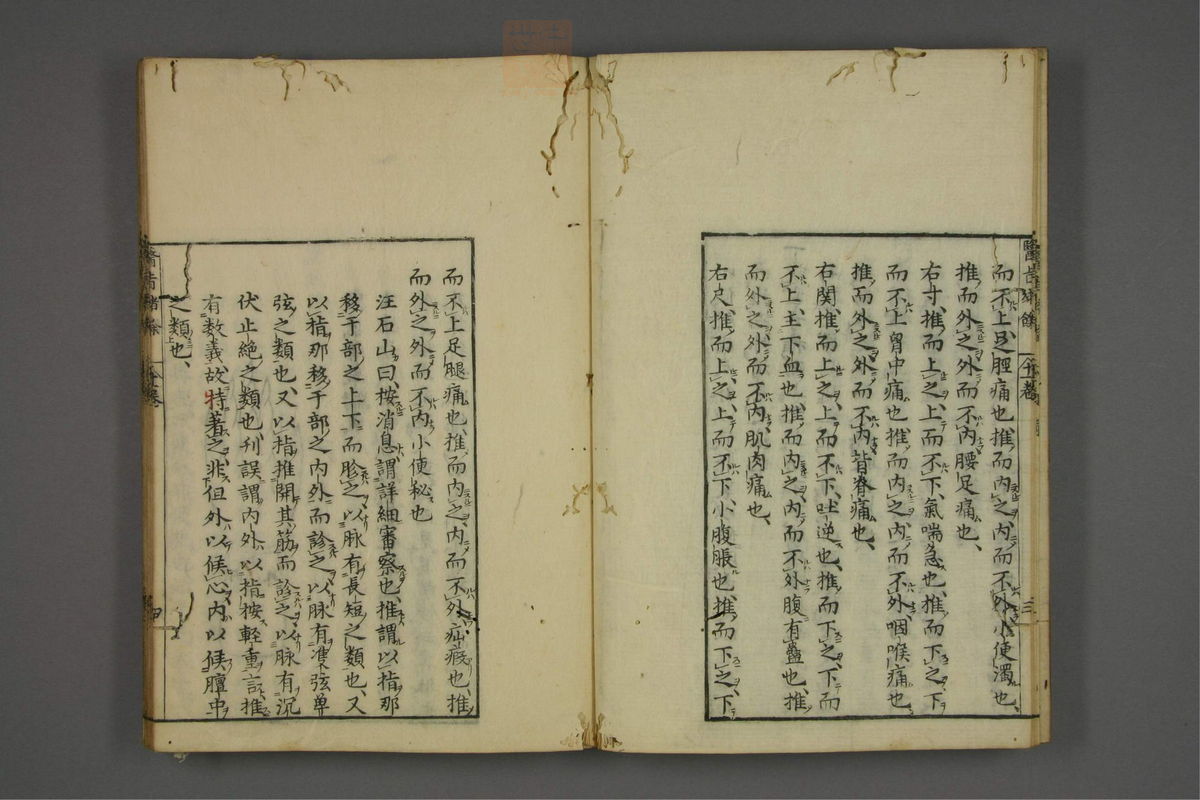 而不上足脛痛也、推而内之、内而不外、小便濁也、
推而外之、外而不内、腰足痛也、
右寸、推而上之、上而不下、氣喘急也、推而下之、下
而不上、胃中痛也、推而内之、内而不外、咽喉痛也、
推而外之、外而不内、背脊痛也、
右関、推而上之、上而不下、吐逆也、推而下之、下而
不上、主下血也、推而内之、内而不外、腹有蠱也、推
而外之、外而不内、肌肉痛也、
右尺、推而上之、上而不下、小腹脹也、推而下之、下
而不上、足腿痛也、推而内之、内而不外、疝瘕也、推
而外之、外而不内、小便秘也
汪石山曰、按消息、謂詳細審察也、推謂以指那
移于部之上下而胗之、以脉有長短之類也、又
以指那移于部之内外而診之、以脉有凖弦單
弦之類也、又以指推開其筋而診之、以脉有沉
伏止絶之類也、刊誤謂内外以指按輕重言、推
有数義、故特著之、非但外以候心、内以候膻中
之類也、